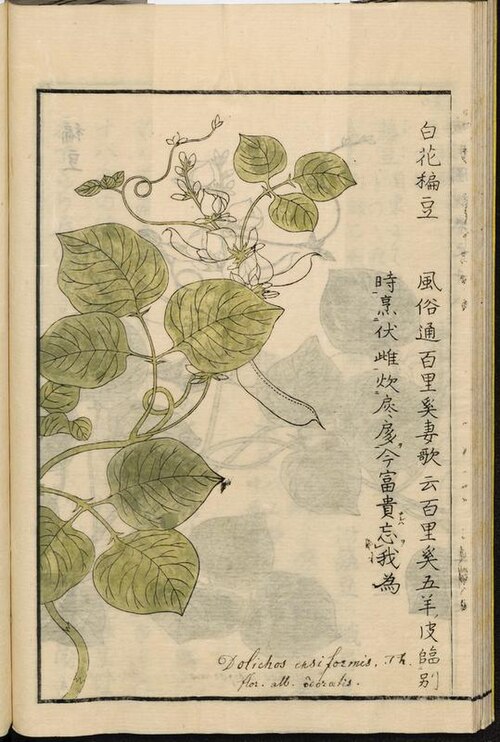 白花稨豆
風俗通百里奚妻歌云百里奚五羊皮臨別
時烹伏雌炊扊扅今富貴忘我為
Dolichos ensiformis. Th.
flor. alb. odoratis.